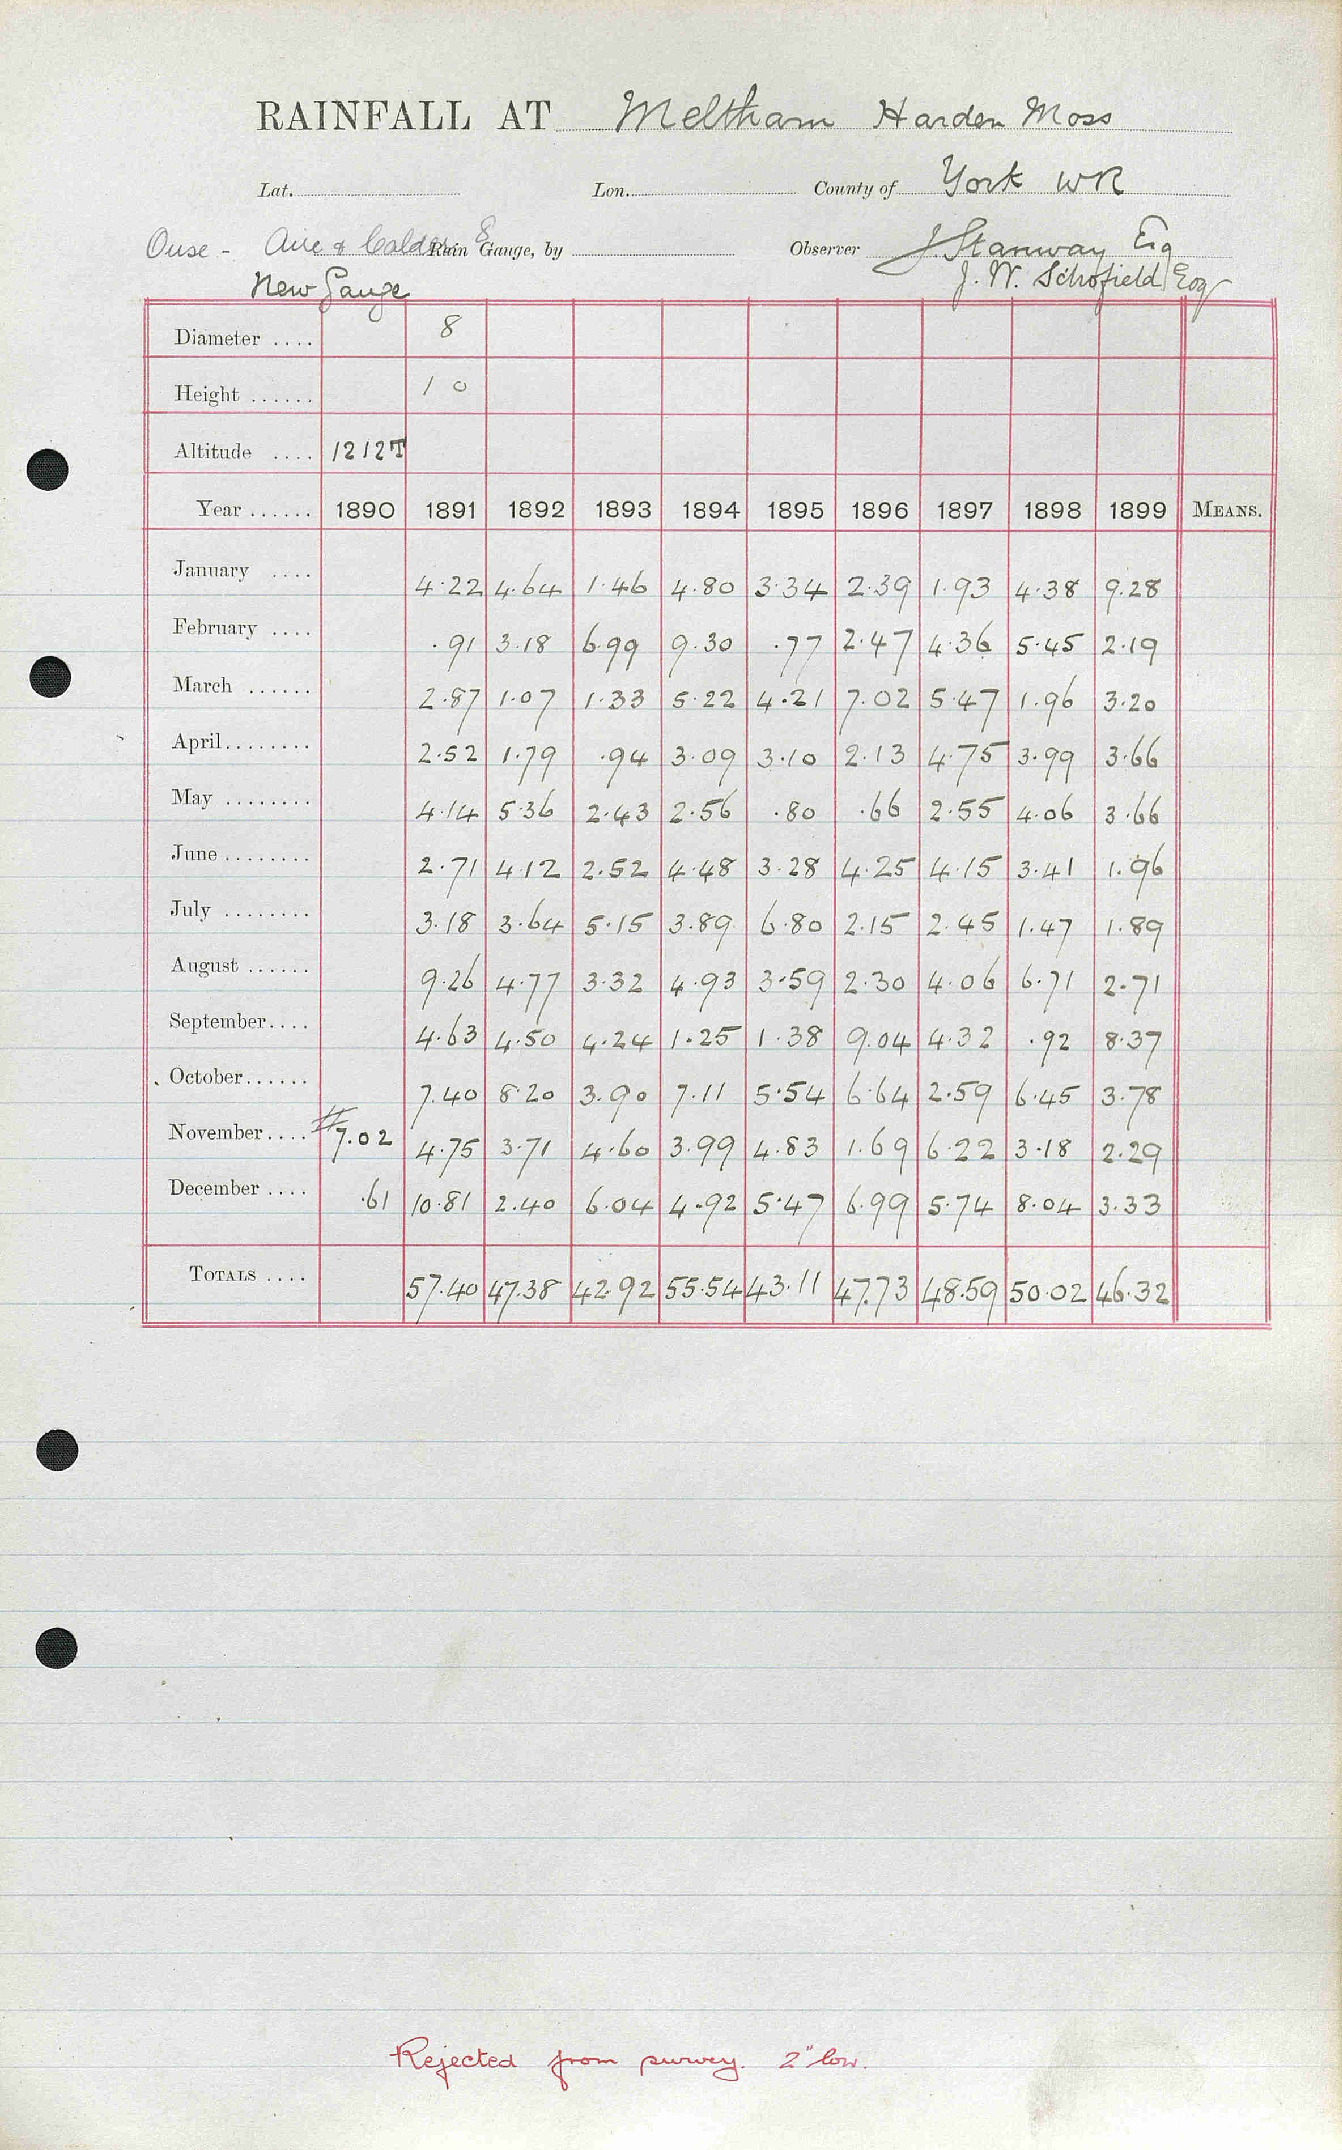 RAINFALL AT Meltham Harden Moss
Lat. Lon. County of York WR
Ouse - Aire & Calder E Rain Gauge, by Observer J. Stanway Esq
New Gauge J. W. Schofield Esq
Diameter .... 8
Height ...... 1 0
Altitude .... 1212T
Year ...... 1890 1891 1892 1893 1894 1895 1896 1897 1898 1899 MEANS.
January .... 4.22 4.64 1.46 4.80 3.34 2.39 1.93 4.38 9.28
February .... .91 3.18 6.99 9.30 .77 2.47 4.36 5.45 2.19
March ...... 2.87 1.07 1.33 5.22 4.21 7.02 5.47 1.96 3.20
April........ 2.52 1.79 .94 3.09 3.10 2.13 4.75 3.99 3.66
May ........ 4.14 5.36 2.43 2.56 .80 .66 2.55 4.06 3.66
June ........ 2.71 4.12 2.52 4.48 3.28 4.25 4.15 3.41 1.96
July ........ 3.18 3.64 5.15 3.89 6.80 2.15 2.45 1.47 1.89
August ...... 9.26 4.77 3.32 4.93 3.59 2.30 4.06 6.71 2.71
September.... 4.63 4.50 4.24 1.25 1.38 9.04 4.32 .92 8.37
October...... 7.40 8.20 3.90 7.11 5.54 6.64 2.59 6.45 3.78
November.... # 7.02 4.75 3.71 4.60 3.99 4.83 1.69 6.22 3.18 2.29
December .... .61 10.81 2.40 6.04 4.92 5.47 6.99 5.74 8.04 3.33
TOTALS .... 57.40 47.38 42.92 55.54 43.11 47.73 48.59 50.02 46.32
Rejected from survey. 2" low.